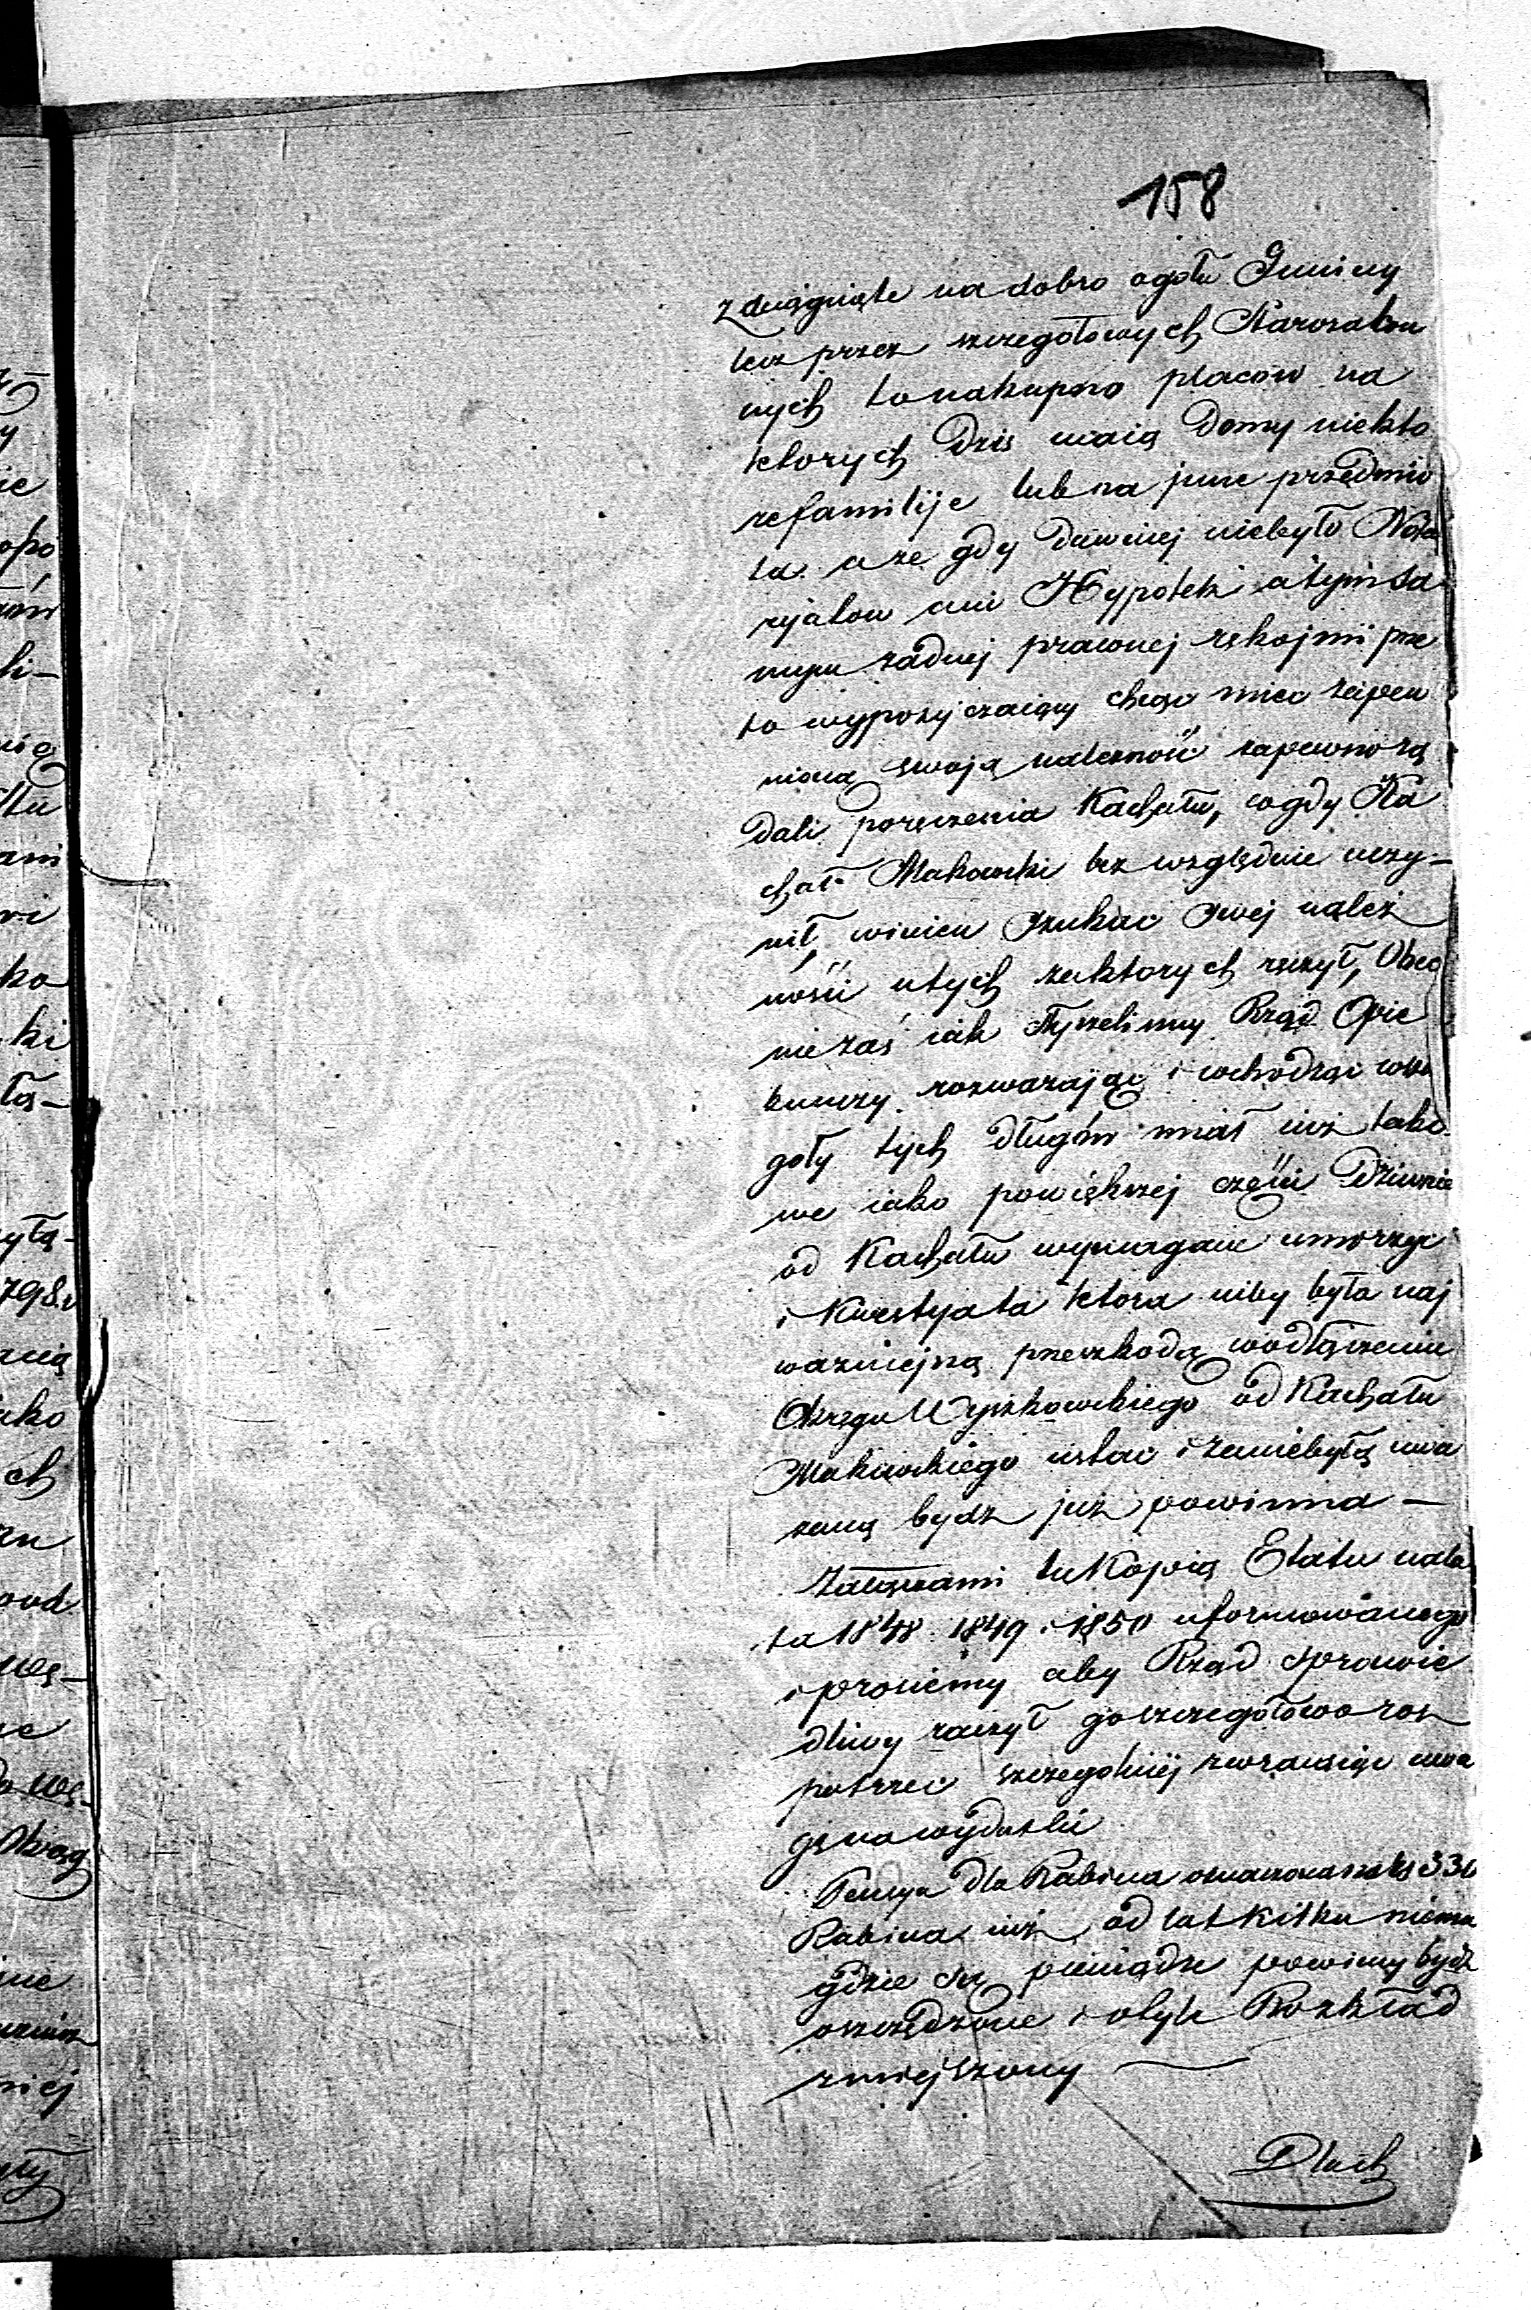 158
zaciągnięte na dobro ogołu Gminy
lecz przez szczegołowych Starozakon
nych to nakupno placow na
ktorych Dzis maią Domy niekto
re familije lub na inne przedmio
ta a że gdy dawniej niebyło Nota
ryjatow ani Hypotek a tym sa
mym żadnej prawnej rękojmi prze
to wypożyczaiący chcąc miec zapew
nioną swoją należność zapewno żą
dali poręczenia Kachału, co gdy Ka
chał Makowski bez względnie uczy-
nił, winien szukac swej należ
ności utych zaktorych ręczył, Obec
nie zaś iak słyszelismy Rząd Opie
kunczy rozwarzając i wchodząc wszcze
goły tych długów miał iuż tako
we iako powiększej części Dziwnie
od Kachału wymagane umorzyc
i Kwestya ta ktora niby była naj
wazniejszą przeszkodą wodłączeniu
Okręgu Wyszkowskiego od Kachału
Makowskiego ustac i zaniebyłą uwa
żaną bydz już powinna —
Załączami tu Kopią Etatu nala
ta 1848 1849 i 1850 uformowanego
i prosiemy aby Rząd sprawie
dliwy raczył go szczegołowo roz
patrzec szczegolniej zwracając uwa
gę na wydatki
Pensya dla Rabina oznaczona na rs 330
Rabina iuż od lat kilku niema
gdzie są pieniądze powinny bydz
oszczędzone i otyle Rozkład
zmiejszony —
Dlach